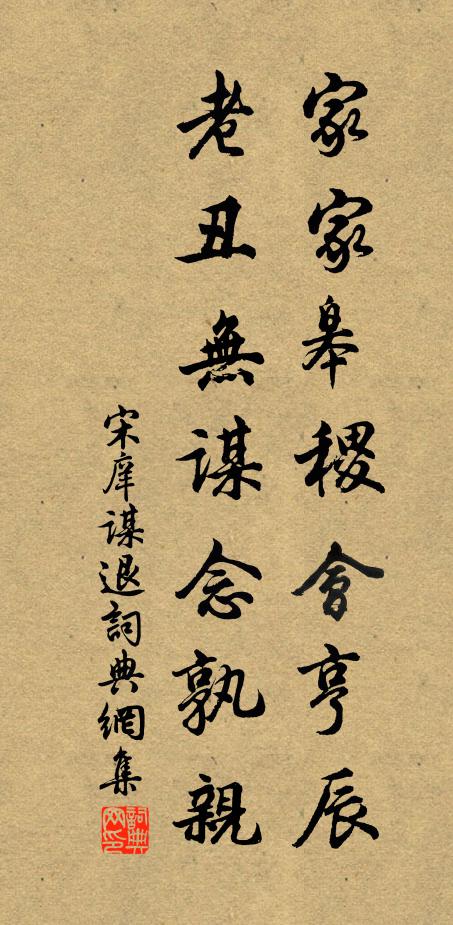 家家皋稷會亨辰
老丑無謀念孰親
宋庠謀退詞典網集
詞典网印